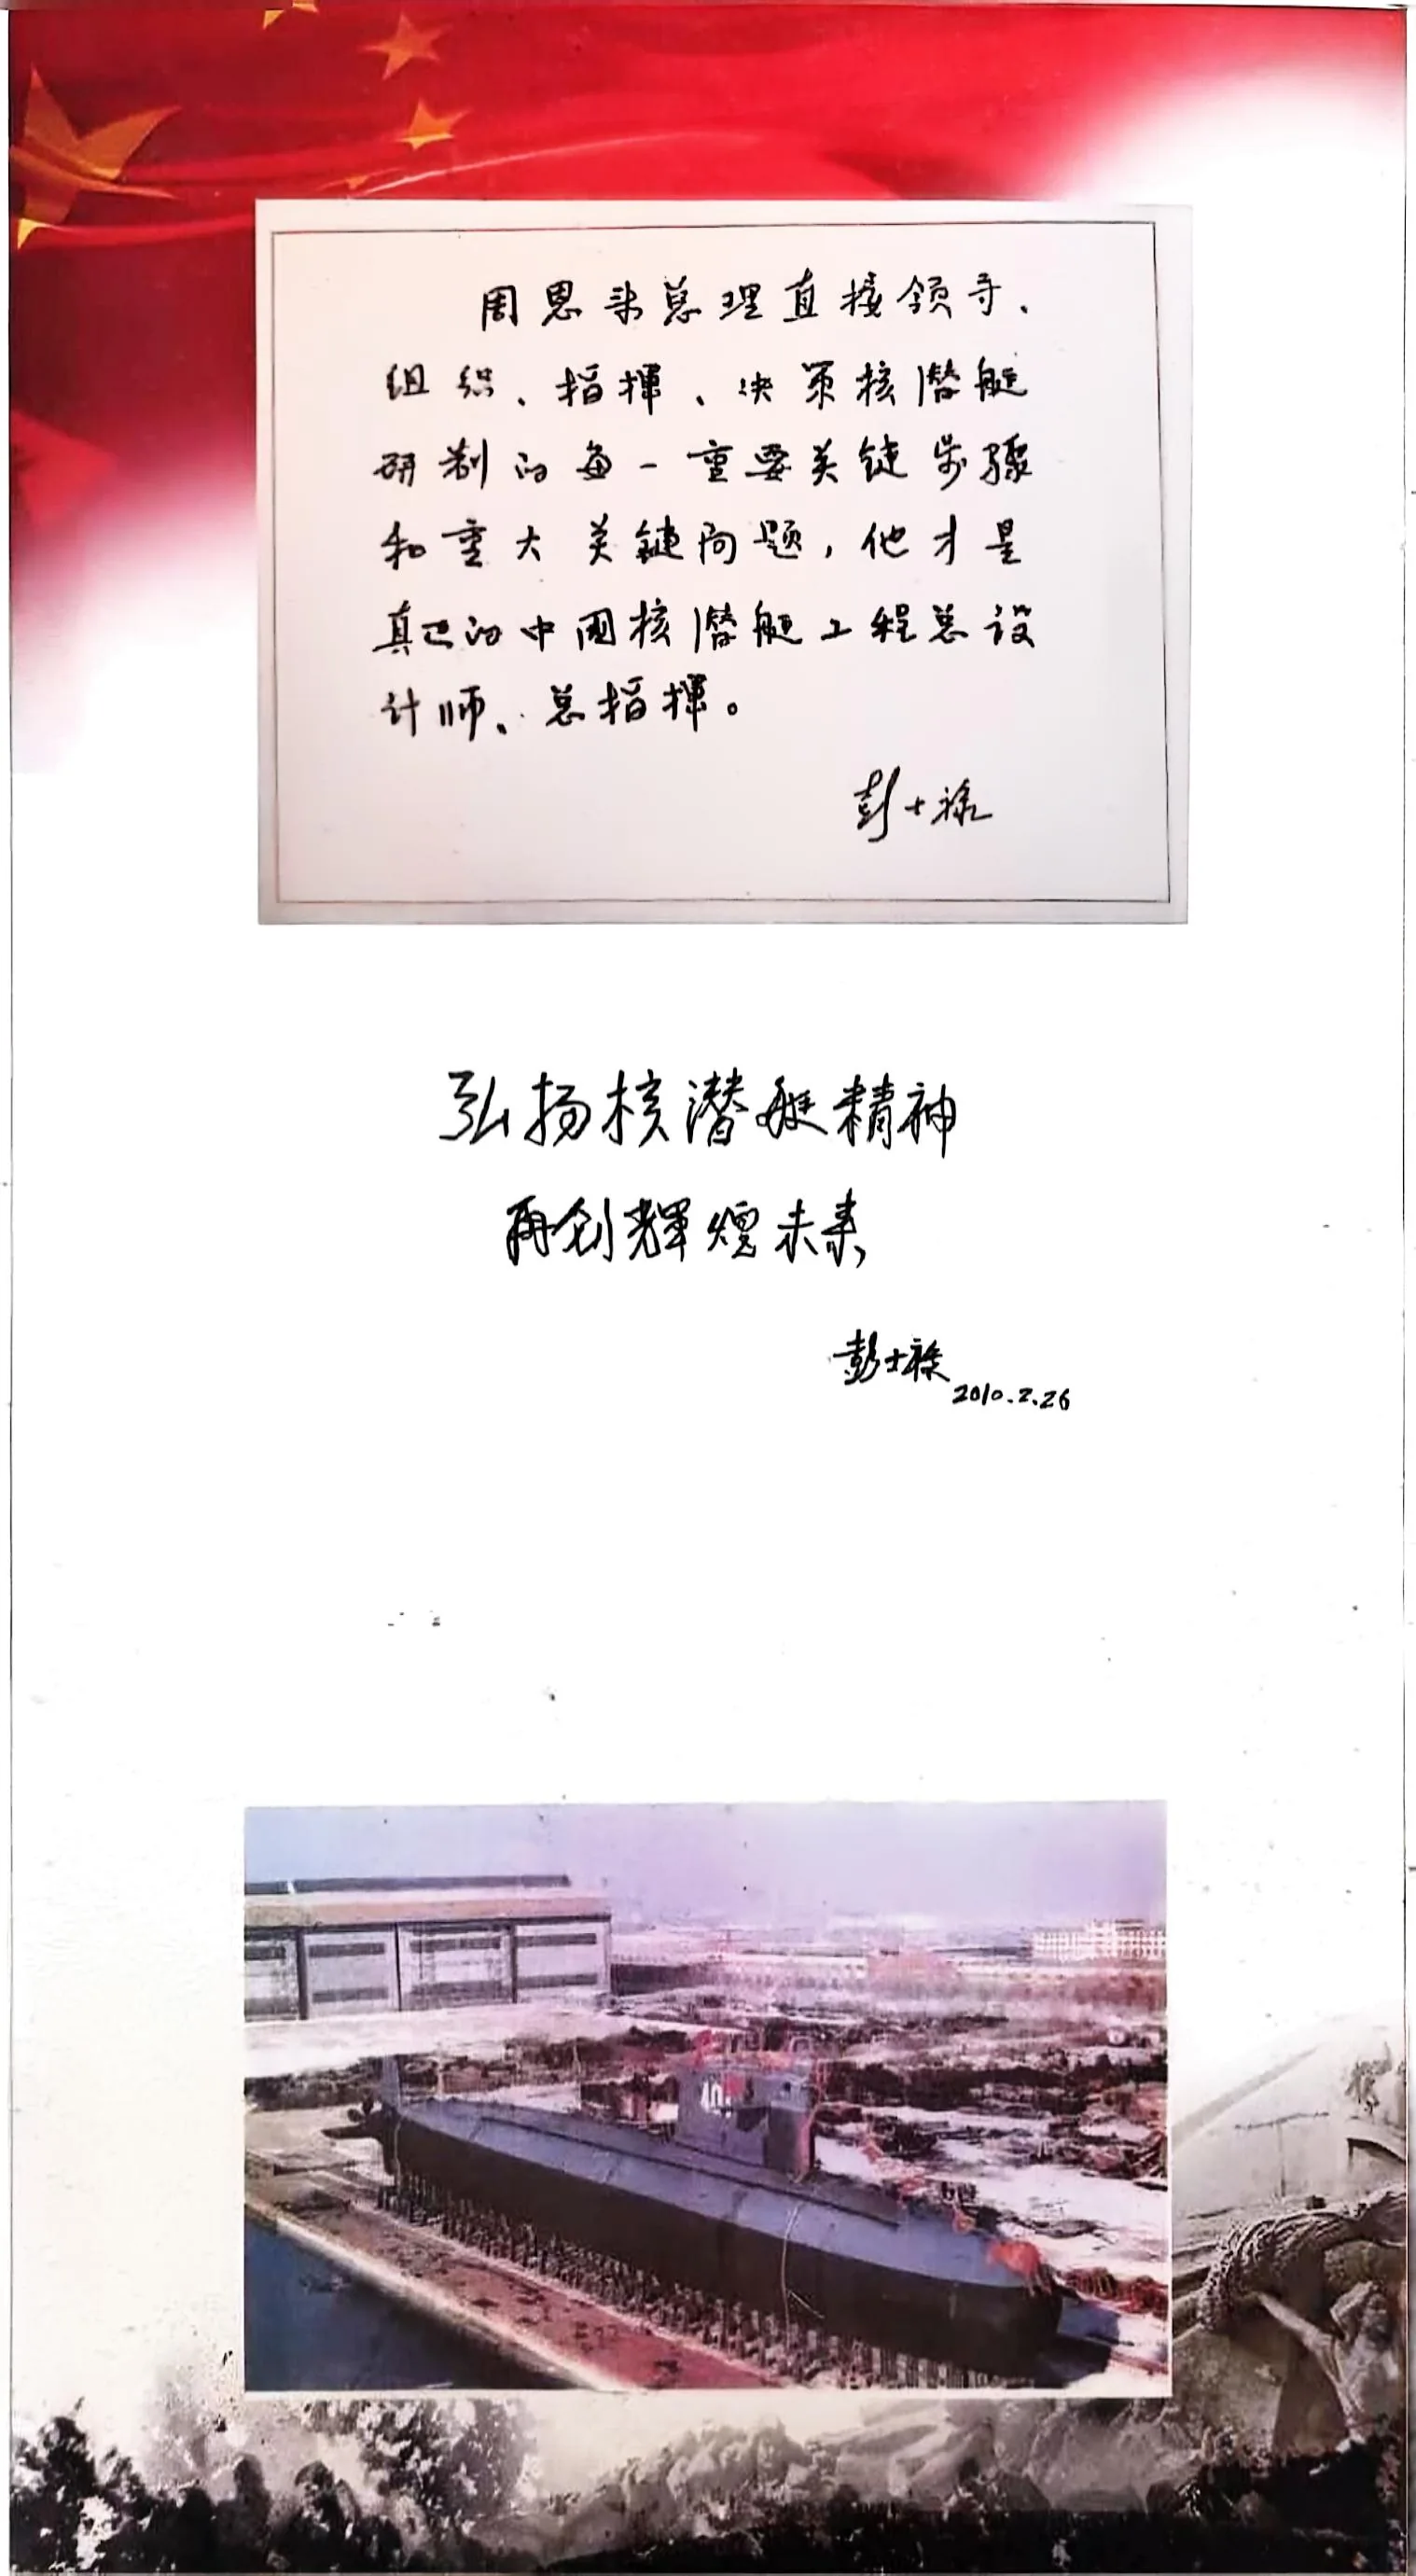 周恩来总理直接领导、
组织、指揮、决策核潜艇
研制的每一重要关键步骤
和重大关键问题，他才是
真正的中国核潜艇工程总设
计师、总指揮。
彭士禄
弘扬核潜艇精神
再创輝煌未来
彭士禄
2010.2.26
40